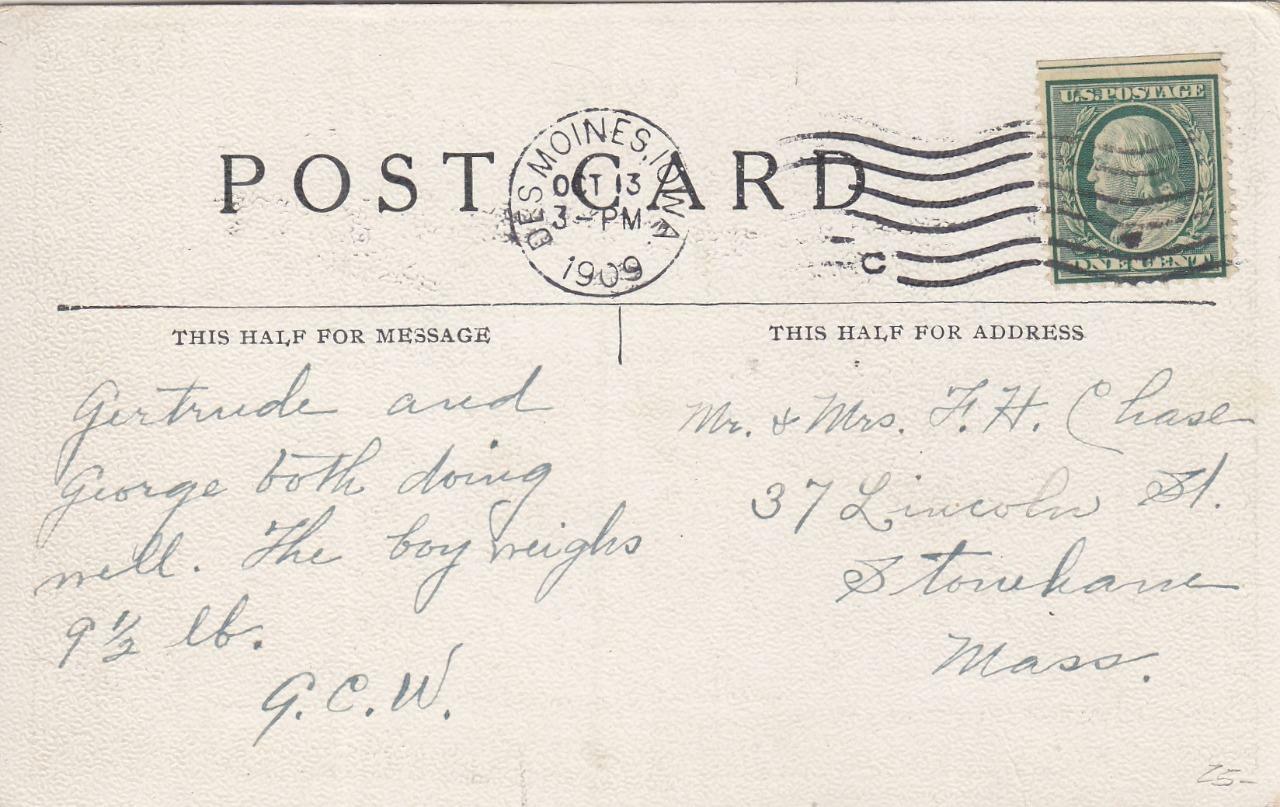 U.S. POSTAGE
POST CARD
DES MOINES, IOWA
OCT 13
3-PM
1909
C
ONE CENT
THIS HALF FOR MESSAGE
Gertrude and
George both doing
well. The boy weighs
9½ lb.
G.C.W.
THIS HALF FOR ADDRESS
Mr. & Mrs. F. H. Chase
37 Lincoln St.
Stonehame
Mass.
75-